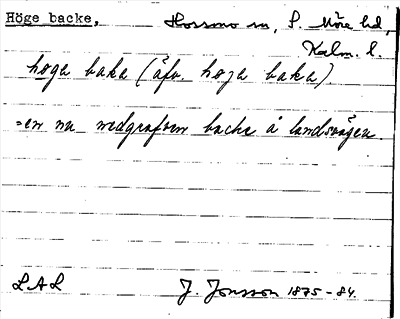 Höge backe. Hossmo sn, S. Möre hd,
Kalm. l.
höga baka (äfv. höja baka)
=en nu nedgrafven backe å landsvägen.
LAL J. Jonsson 1875-84.